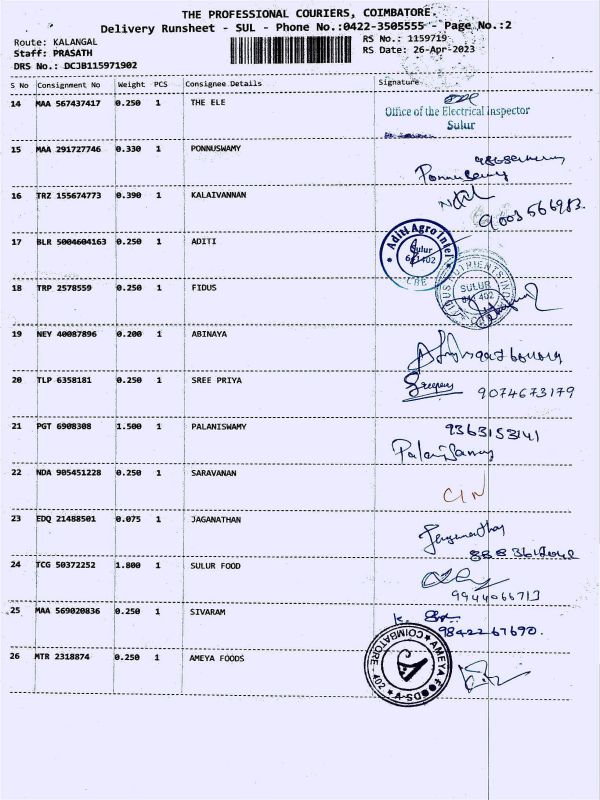 THE PROFESSIONAL COURIERS, COIMBATORE.
Delivery Runsheet - SUL - Phone No.:0422-3505555 - Page No.:2
Route: KALANGAL
RS No.: 1159719
Staff: PRASATH
RS Date: 26-Apr-2023
DRS No.: DCJB115971902
S No Consignment No Weight PCS Consignee Details Signature
14 MAA 567437417 0.250 1 THE ELE
Office of the Electrical Inspector
Sulur
15 MAA 291727746 0.330 1 PONNUSWAMY
Ponnuswamy
16 TRZ 155674773 0.390 1 KALAIVANNAN
9003566983.
17 BLR 5004604163 0.250 1 ADITI
Aditi Agro Intel
Sulur
641402
CBE
18 TRP 2578559 0.250 1 FIDUS
SULUR
641 402
19 NEY 40087896 0.200 1 ABINAYA
20 TLP 6358181 0.250 1 SREE PRIYA
9074673179
21 PGT 6908308 1.500 1 PALANISWAMY
9363153141
Palaniswamy
22 NDA 905451228 0.250 1 SARAVANAN
CIN
23 EDQ 21488501 0.075 1 JAGANATHAN
24 TCG 50372252 1.800 1 SULUR FOOD
9944066713
25 MAA 569020836 0.250 1 SIVARAM
9842267690.
26 MTR 2318874 0.250 1 AMEYA FOODS
AMEYA FOODS
COIMBATORE - 402